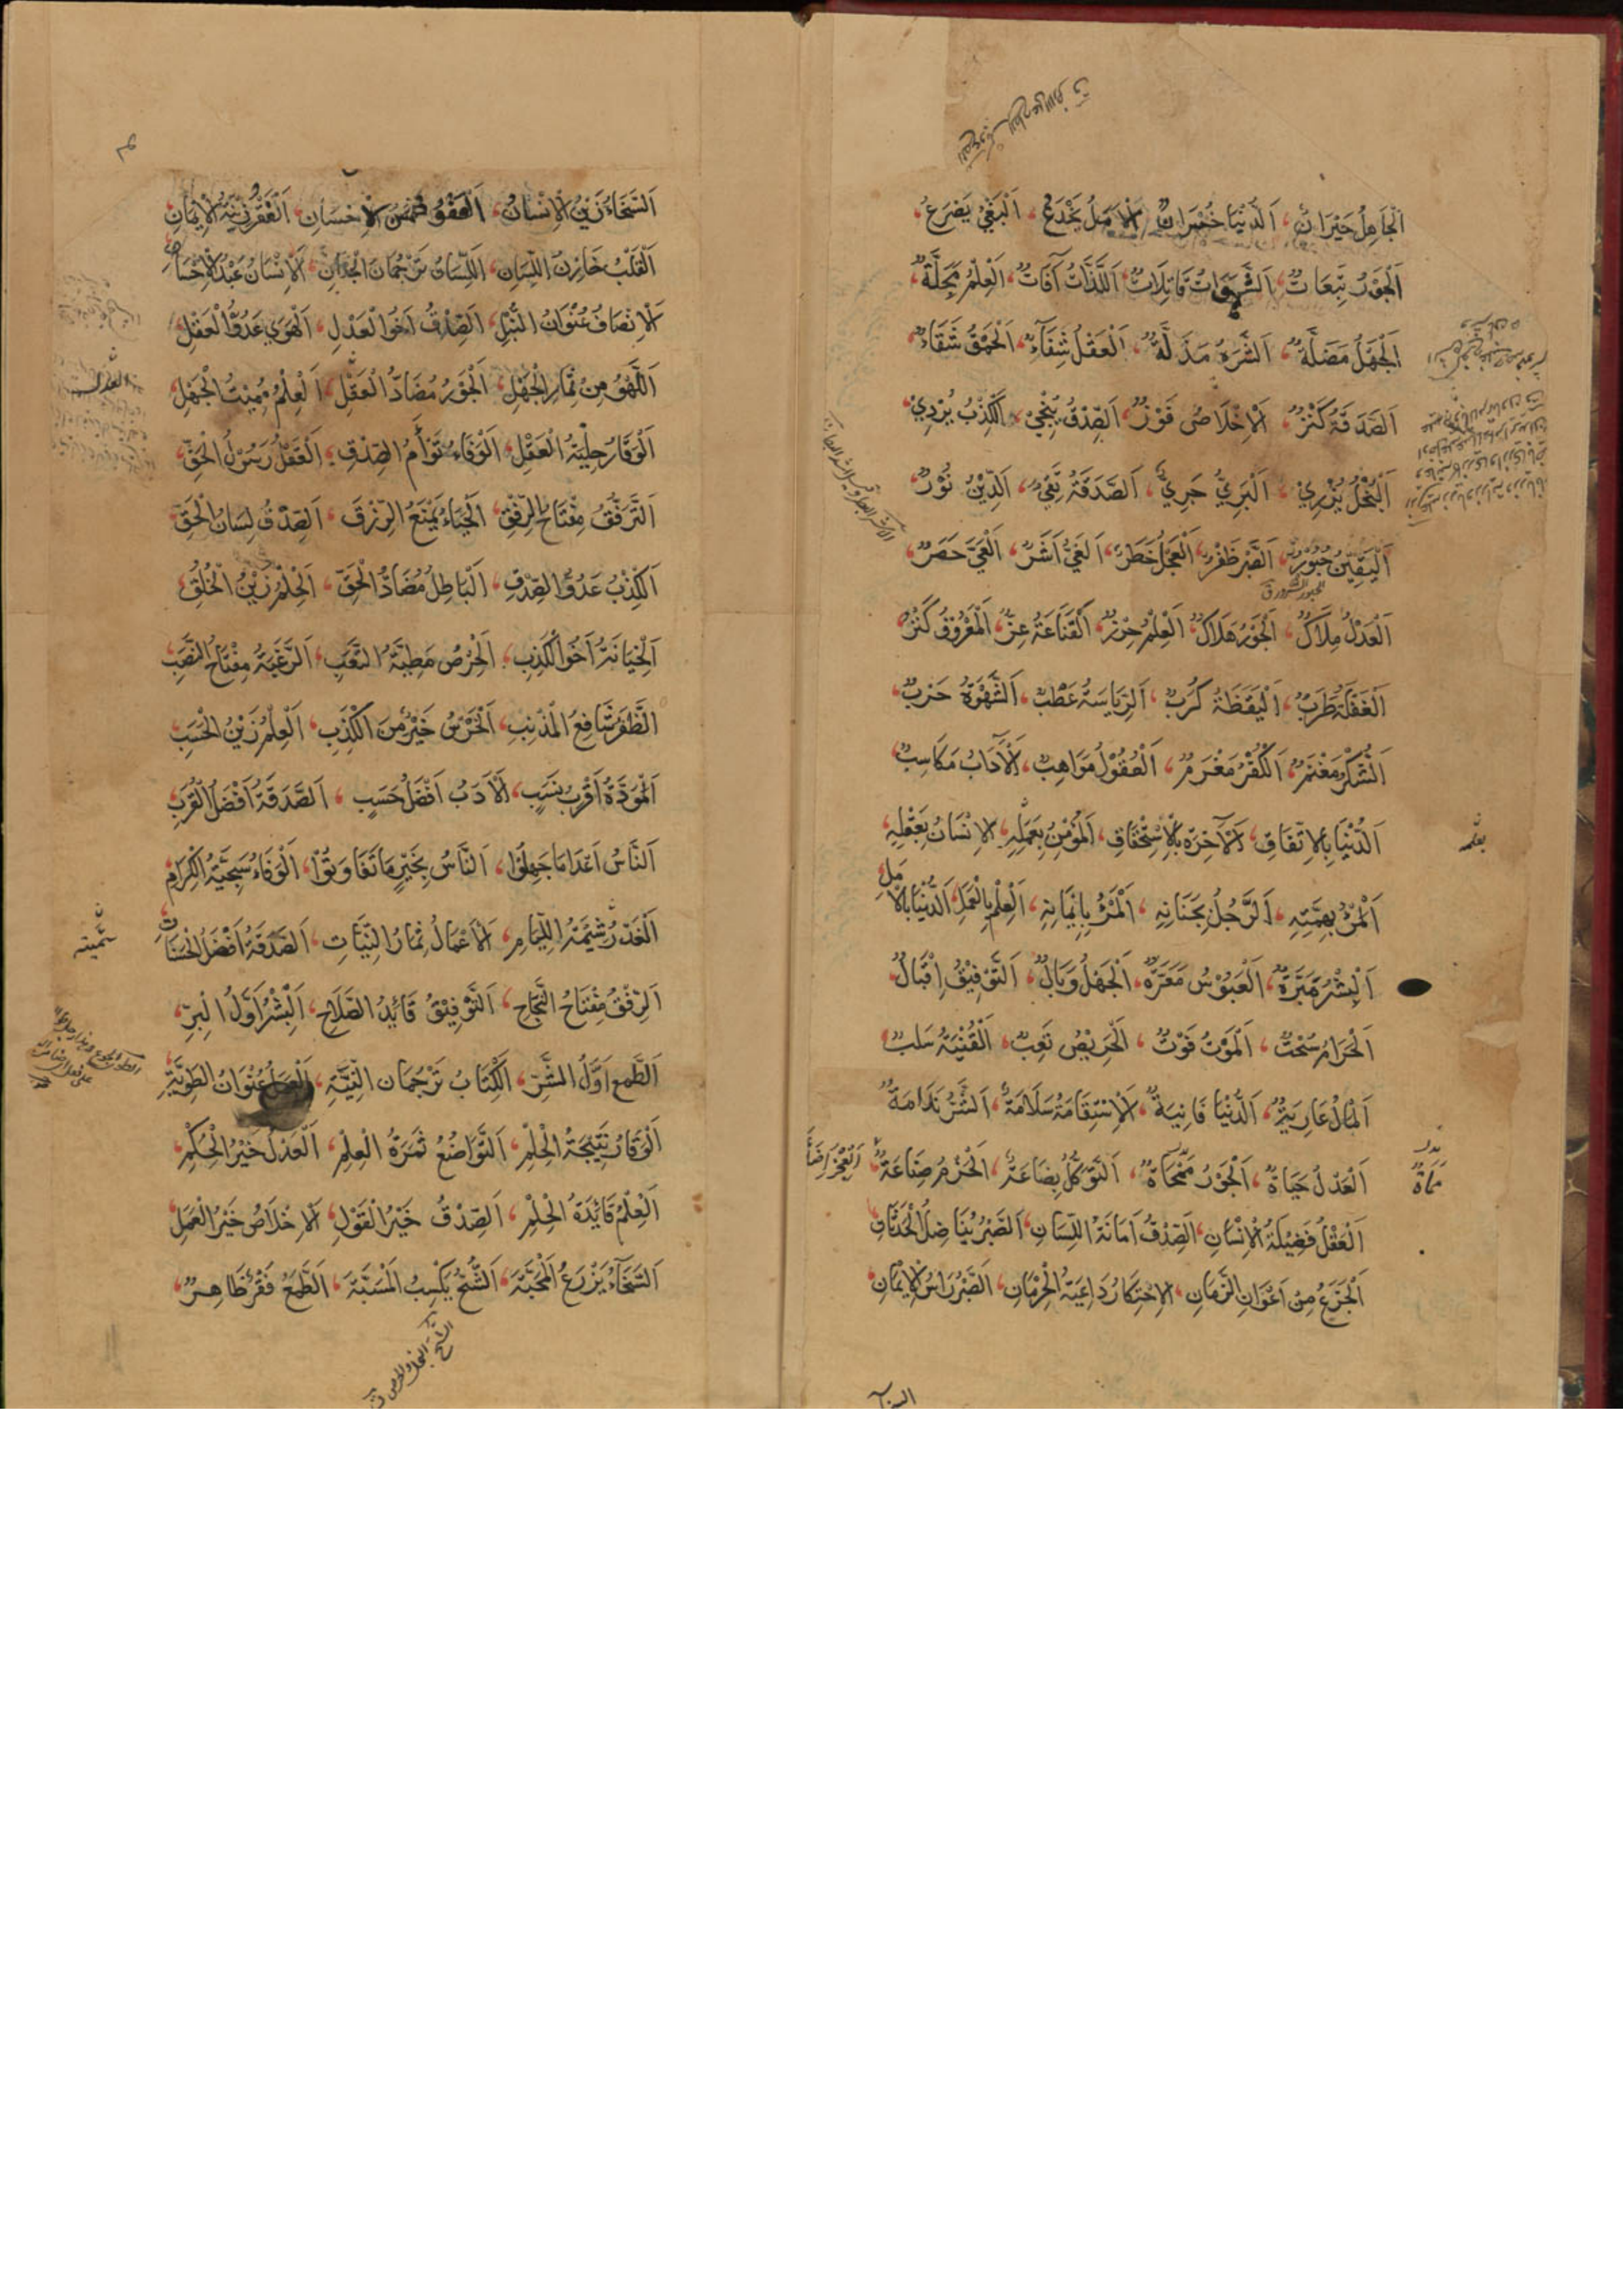 اَلْجَاهِلُ حَيْرَانٌ، اَلدُّنْيَا خُسْرَانٌ، اَلْاَمَلُ يَخْدَعُ، اَلْبَغْيُ يَصْرَعُ،
اَلْجَوْرُ تَبِعَاتٌ، اَلشَّهَوَاتُ قَاتِلَاتٌ، اَللَّذَّاتُ آفَاتٌ، اَلْعِلْمُ مَجَلَّةٌ،
اَلْجَهْلُ مَضَلَّةٌ، اَلشَّرَهُ مَذَلَّةٌ، اَلْعَقْلُ شِفَآءٌ، اَلْحُمْقُ شَقَاءٌ،
اَلصَّدَقَةُ كَنْزٌ، اَلْاِخْلَاصُ فَوْزٌ، اَلصِّدْقُ يُنْجِيْ، اَلْكَذِبُ يُرْدِيْ،
اَلْبُخْلُ يُزْرِيْ، اَلْبَرِيُّ جَرِيٌّ، اَلصَّدَقَةُ تَقِيْ، اَلدِّيْنُ نُوْرٌ،
اَلْيَقِيْنُ حُبُوْرٌ، اَلصَّبْرُ ظَفْرٌ، اَلْعَجَلُ خَطَرٌ، اَلْغَيُّ اَشَرٌ، اَلْعَيُّ حَصَرٌ،
الحبور السرور ق
اَلْعَدْلُ مِلَاكٌ، اَلْجَوْرُ هَلَاكٌ، اَلْعِلْمُ حِرْزٌ، اَلْقَنَاعَةُ عِزٌّ، اَلْمَعْرُوْفُ كَنْزٌ،
اَلْغَفْلَةُ طَرَبٌ، اَلْيَقَظَةُ كَرْبٌ، اَلرِّيَاسَةُ عَطَبٌ، اَلشَّهْوَةُ حَرَبٌ،
اَلشُّكْرُ مَغْنَمٌ، اَلْكُفْرُ مَغْرَمٌ، اَلْعُقُوْلُ مَوَاهِبٌ، اَلْآدَابُ مَكَاسِبٌ،
اَلدُّنْيَا بِالْاِتِّفَاقِ، اَلْآخِرَةُ بِالْاِسْتِحْقَاقِ، اَلْمُؤْمِنُ بِعَمَلِهِ، اَلْاِنْسَانُ بِعَقْلِهِ،
بعلمه
اَلْمَرْءُ بِهِمَّتِهِ، اَلرَّجُلُ بِجَنَانِهِ، اَلْمَرْءُ بِاِيْمَانِهِ، اَلْعِلْمُ بِالْعَمَلِ، اَلدُّنْيَا بِالْاَمَلِ
اَلْبِشْرُ مَبَرَّةٌ، اَلْعَبُوْسُ مَعَرَّةٌ، اَلْجَهْلُ وَبَالٌ، اَلتَّوْفِيْقُ اِقْبَالٌ،
اَلْحَرَامُ سُحْتٌ، اَلْمَوْتُ فَوْتٌ، اَلْحَرِيْصُ تَعِبٌ، اَلْقُنْيَةُ سَلَبٌ
اَلْمَالُ عَارِيَةٌ، اَلدُّنْيَا فَانِيَةٌ، اَلْاِسْتِقَامَةُ سَلَامَةٌ، اَلشَّرُّ نَدَامَةٌ
اَلْعَدْلُ حَيَاةٌ، اَلْجَوْرُ مَمْحَاةٌ، اَلتَّوَكُّلُ بِضَاعَةٌ، اَلْحَزْمُ صِنَاعَةٌ، اَلْعَجْزُ اِضَاعَةٌ
اَلْعَقْلُ فَضِيْلَةُ الْاِنْسَانِ، اَلصِّدْقُ اَمَانَةُ اللِّسَانِ، اَلصَّبْرُ يُنَاضِلُ الْحَدَثَانِ
اَلْجَزَعُ مِنْ اَعْوَانِ الزَّمَانِ، اَلْاِحْتِكَارُ دَاعِيَةُ الْحِرْمَانِ، اَلصَّبْرُ رَاْسُ الْاِيْمَانِ
اَلسَّخَاءُ زَيْنُ الْاِنْسَانِ، اَلْعَفْوُ اَحْسَنُ الْاِحْسَانِ، اَلْفَقْرُ زِيْنَةُ الْاِيْمَانِ
اَلْقَلْبُ خَازِنُ اللِّسَانِ، اَللِّسَانُ تَرْجُمَانُ الْجَنَانِ، اَلْاِنْسَانُ عَبْدُ الْاِحْسَانِ
اَلْاِنْصَافُ عُنْوَانُ النُّبْلِ، اَلصِّدْقُ اَخُو الْعَدْلِ، اَلْهَوَى عَدُوُّ الْعَقْلِ
اَللَّهْوُ مِنْ ثِمَارِ الْجَهْلِ، اَلْجَوْرُ مُضَادُّ الْعَقْلِ، اَلْعِلْمُ مُمِيْتُ الْجَهْلِ
اَلْوَقَارُ حِلْيَةُ الْعَقْلِ، اَلْوَفَاءُ تَوْأَمُ الصِّدْقِ، اَلْعَقْلُ رَسُوْلُ الْحَقِّ
اَلتَّرَفُّقُ مِفْتَاحُ الرِّفْقِ، اَلْحَيَاءُ يَمْنَعُ الرِّزْقَ، اَلصِّدْقُ لِسَانُ الْحَقِّ
اَلْكِذْبُ عَدُوُّ الصِّدْقِ، اَلْبَاطِلُ مُضَادُّ الْحَقِّ، اَلْحِلْمُ زَيْنُ الْخُلُقِ
اَلْخِيَانَةُ اَخُو الْكَذِبِ، اَلْحِرْصُ مَطِيَّةُ التَّعَبِ، اَلرَّغْبَةُ مِفْتَاحُ النَّصَبِ
اَلظَّفَرُ شَافِعُ الْمُذْنِبِ، اَلْخَرَسُ خَيْرٌ مِنَ الْكَذِبِ، اَلْعِلْمُ زَيْنُ الْحَسَبِ
اَلْمَوَدَّةُ اَقْرَبُ نَسَبٍ، اَلْاَدَبُ اَفْضَلُ حَسَبٍ، اَلصَّدَقَةُ اَفْضَلُ الْقُرَبِ
اَلنَّاسُ اَعْدَاءُ مَا جَهِلُوْا، اَلنَّاسُ بِخَيْرٍ مَا تَفَاوَتُوْا، اَلْوَفَاءُ سَجِيَّةُ الْكِرَامِ
اَلْغَدْرُ شِيْمَةُ اللِّئَامِ، اَلْاَعْمَالُ ثِمَارُ النِّيَّاتِ، اَلصَّدَقَةُ اَفْضَلُ الْحَسَنَاتِ
اَلرِّفْقُ مِفْتَاحُ النَّجَاحِ، اَلتَّوْفِيْقُ قَائِدُ الصَّلَاحِ، اَلْبِشْرُ اَوَّلُ الْبِرِّ،
اَلطَّمَعُ اَوَّلُ الشَّرِّ، اَلْكِتَابُ تَرْجُمَانُ النِّيَّةِ، اَلْعَمَلُ عُنْوَانُ الطَّوِيَّةِ
اَلْوَقَارُ نَتِيْجَةُ الْحِلْمِ، اَلتَّوَاضُعُ ثَمَرَةُ الْعِلْمِ، اَلْعَدْلُ خَيْرُ الْحُكْمِ
اَلْعِلْمُ قَائِدَةُ الْحِلْمِ، اَلصِّدْقُ خَيْرُ الْقَوْلِ، اَلْاِخْلَاصُ خَيْرُ الْعَمَلِ
اَلسَّخَآءُ يَزْرَعُ الْمَحَبَّةَ، اَلشُّحُّ يَكْسِبُ الْمَسَبَّةَ، اَلطَّمَعُ فَقْرٌ ظَاهِرٌ،
الشح البخل والحرص ق